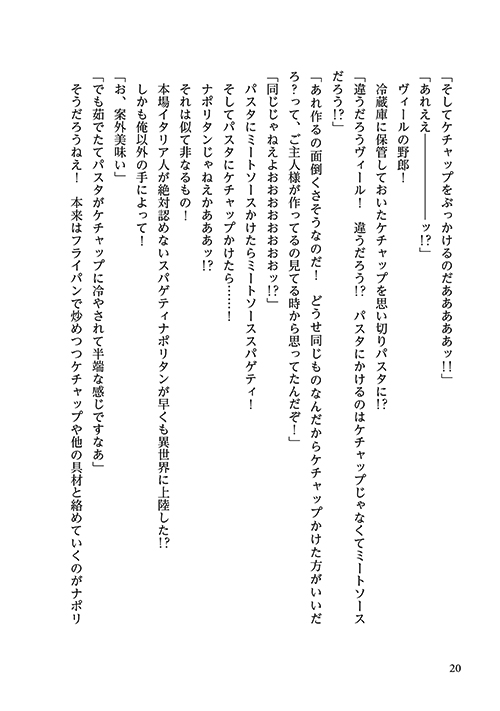 「そしてケチャップをぶっかけるのだあああああッ!!」
「あれええ――――――ッ!?」
ヴィールの野郎！
冷蔵庫に保管しておいたケチャップを思い切りパスタに!?
「違うだろうヴィール！　違うだろう!?　パスタにかけるのはケチャップじゃなくてミートソース
だろう!?」
「あれ作るの面倒くさそうなのだ！　どうせ同じものなんだからケチャップかけた方がいいだ
ろ？って、ご主人様が作ってるの見てる時から思ってたんだぞ！」
「同じじゃねえよおおおおおおおッ!?」
パスタにミートソースかけたらミートソーススパゲティ！
そしてパスタにケチャップかけたら……！
ナポリタンじゃねえかあああッ!?
それは似て非なるもの！
本場イタリア人が絶対認めないスパゲティナポリタンが早くも異世界に上陸した!?
しかも俺以外の手によって！
「お、案外美味い」
「でも茹でたてパスタがケチャップに冷やされて半端な感じですなあ」
そうだろうねえ！　本来はフライパンで炒めつつケチャップや他の具材と絡めていくのがナポリ
20